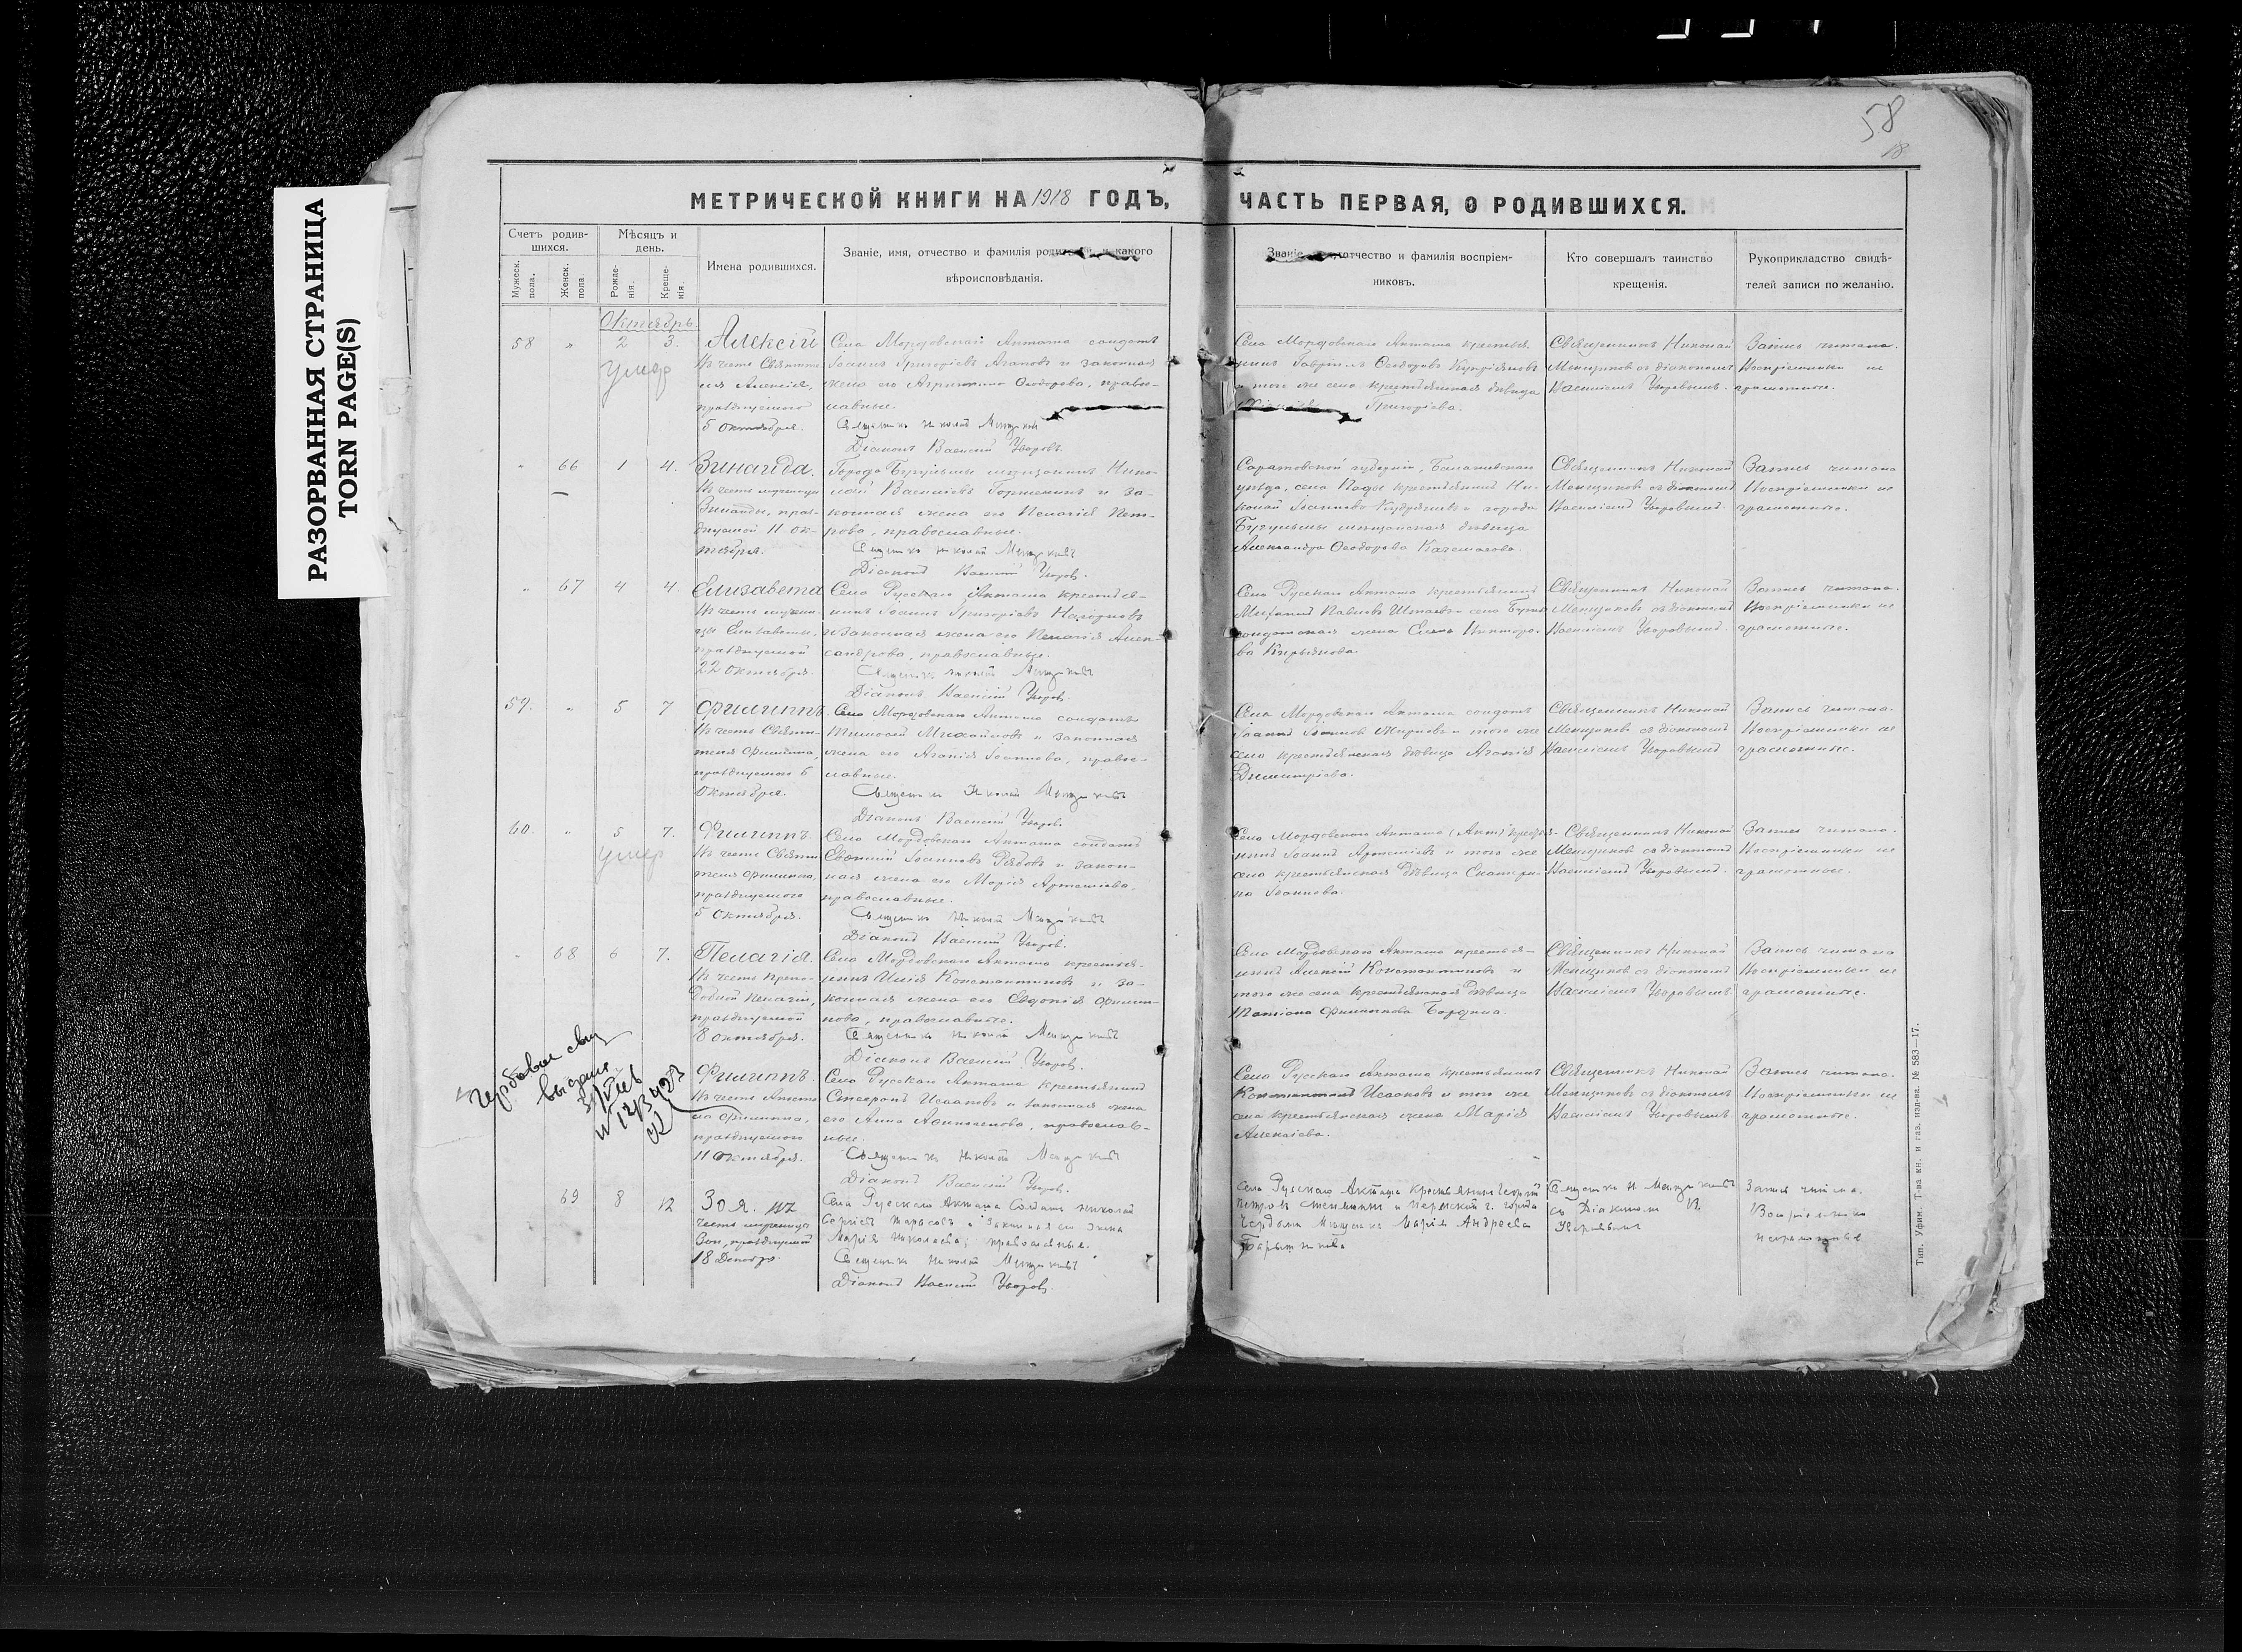 РАЗОРВАННАЯ СТРАНИЦА
TORN PAGE(S)
58
18
МЕТРИЧЕСКОЙ КНИГИ НА 1918 ГОДЪ,
ЧАСТЬ ПЕРВАЯ, О РОДИВШИХСЯ.
Счетъ родив-
шихся.
Мужеск.
пола.
Женск.
пола.
Мѣсяцъ и
день.
Рожде-
нія.
Креще-
нія.
Имена родившихся.
Званіе, имя, отчество и фамилія родителей, и какого
вѣроисповѣданія.
Званіе, отчество и фамилія воспріем-
никовъ.
Кто совершалъ таинство
крещенія.
Рукоприкладство свидѣ-
телей записи по желанію.
Октябрь.
58 " 2 3.
умер
Алексій
Въ честь Святите-
ля Алексія,
празднуемого
5 октября.
Села Мордовскаго Акташа солдатъ
Іоаннъ Григоріевъ Агаповъ и законная
жена его Агриппина Ѳеодорова, право-
славные.
Священникъ Николай Менщиковъ
Діаконъ Василій Уваровъ.
Села Мордовскаго Акташа крестья-
нинъ Гавріилъ Ѳеодоровъ Купріяновъ
и того же села крестьянская дѣвица
Григоріева.
Священникъ Николай
Менщиковъ съ діакономъ
Василіемъ Уваровымъ.
Запись читана.
Воспріемники не
грамотные.
" 66 1 4.
Зинаида.
Въ честь мученицы
Зинаиды, праз-
днуемой 11 ок-
тября.
Города Бугульмы мѣщанинъ Нико-
лай Василіевъ Горшенинъ и за-
конная жена его Пелагія Пет-
рова, православные.
Священникъ Николай Менщиковъ
Діаконъ Василій Уваровъ.
Саратовской губерніи, Балашовскаго
уѣзда, села Пады крестьянинъ Ни-
колай Іоанновъ Кудряшевъ и города
Бугульмы мѣщанская дѣвица
Александра Ѳеодорова
Священникъ Николай
Менщиковъ съ діакономъ
Василіемъ Уваровымъ.
Запись читана
Воспріемники не
грамотные.
" 67 4 4.
Елизавета
Въ честь мучени-
цы Елизаветы,
празднуемой
22 октября.
Села Русскаго Акташа крестья-
нинъ Іоаннъ Григоріевъ Нагорновъ
и законная жена его Пелагія Алек-
сандрова, православные.
Священникъ Николай Менщиковъ
Діаконъ Василій Уваровъ.
Села Русскаго Акташа крестьянинъ
Михаилъ Павловъ и села
солдатская жена Елена Викторо-
ва Кирьянова.
Священникъ Николай
Менщиковъ съ діакономъ
Василіемъ Уваровымъ.
Запись читана.
Воспріемники не
грамотные.
59. " 5 7
Филиппъ.
Въ честь Святи-
теля Филиппа,
празднуемого 5
октября.
Села Мордовскаго Акташа солдатъ
Тимоѳей Михайловъ и законная
жена его Агапія Іоаннова, право-
славные.
Священникъ Николай Менщиковъ
Діаконъ Василій Уваровъ.
Села Мордовскаго Акташа солдатъ
Іоаннъ Іоанновъ Жирновъ и того же
села крестьянская дѣвица Агапія
Димитріева.
Священникъ Николай
Менщиковъ съ діакономъ
Василіемъ Уваровымъ
Запись читана.
Воспріемники не
грамотные.
60. " 5 7.
умер
Филиппъ
Въ честь Святи-
теля Филиппа,
празднуемого
5 Октября.
Села Мордовскаго Акташа солдатъ
Евѳимій Іоанновъ Рябовъ и закон-
ная жена его Марія Артемьева,
православные.
Священникъ Николай Менщиковъ
Діаконъ Василій Уваровъ.
Села Мордовскаго Акташа крестья-
нинъ Іоаннъ Артемьевъ и того же
села крестьянская дѣвица Екатери-
на Іоаннова.
Священникъ Николай
Менщиковъ съ діакономъ
Василіемъ Уваровымъ.
Запись читана.
Воспріемники не
грамотные.
" 68 6 7.
Пелагія.
Въ честь препо-
добной Пелагіи,
празднуемой
8 октября.
Села Мордовскаго Акташа крестья-
нинъ Илія Константиновъ и за-
конная жена его Евдокія Филип-
пова, православные.
Священникъ Николай Менщиковъ
Діаконъ Василій Уваровъ.
Села Мордовскаго Акташа крестья-
нинъ Алексій Константиновъ и
того же села крестьянская дѣвица
Татіана Филиппова
Священникъ Николай
Менщиковъ съ діакономъ
Василіемъ Уваровымъ.
Запись читана
Воспріемники не
грамотные.
выдано
1923
Филиппъ.
Въ честь Апосто-
ла Филиппа,
празднуемого
11 октября.
Села Русскаго Акташа крестьянинъ
Исааковъ и законная жена
его Анна православ-
ные.
Священникъ Николай Менщиковъ
Діаконъ Василій Уваровъ.
Села Русскаго Акташа крестьянинъ
Константинъ Исааковъ и того же
села крестьянская жена Марія
Алексіева.
Священникъ Николай
Менщиковъ съ діакономъ
Василіемъ Уваровымъ.
Запись читана.
Воспріемники не
грамотные.
69 8 12
Зоя. въ
честь мученицы
Зои, празднуемой
18 Декабря.
Села Русскаго Акташа Солдатъ Николай
Сергіевъ Тарасовъ и законная его жена
Марія Николаева, православные.
Священникъ Николай Менщиковъ
Діаконъ Василій Уваровъ.
Села Русскаго Акташа крестьянинъ Георгій
Петровъ и Пермской г. города
Чердыни Марія Андреева
Священникъ Н. Менщиковъ
съ Діакономъ В.
Уваровымъ
Запись читана.
Воспріемники
неграмотные
Тип. Уфим. Т-ва кн. и газ. изд-ва. № 583—17.